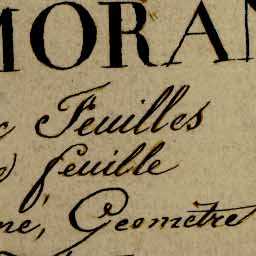 MORAN
Feuilles
feuille
me, Geometre